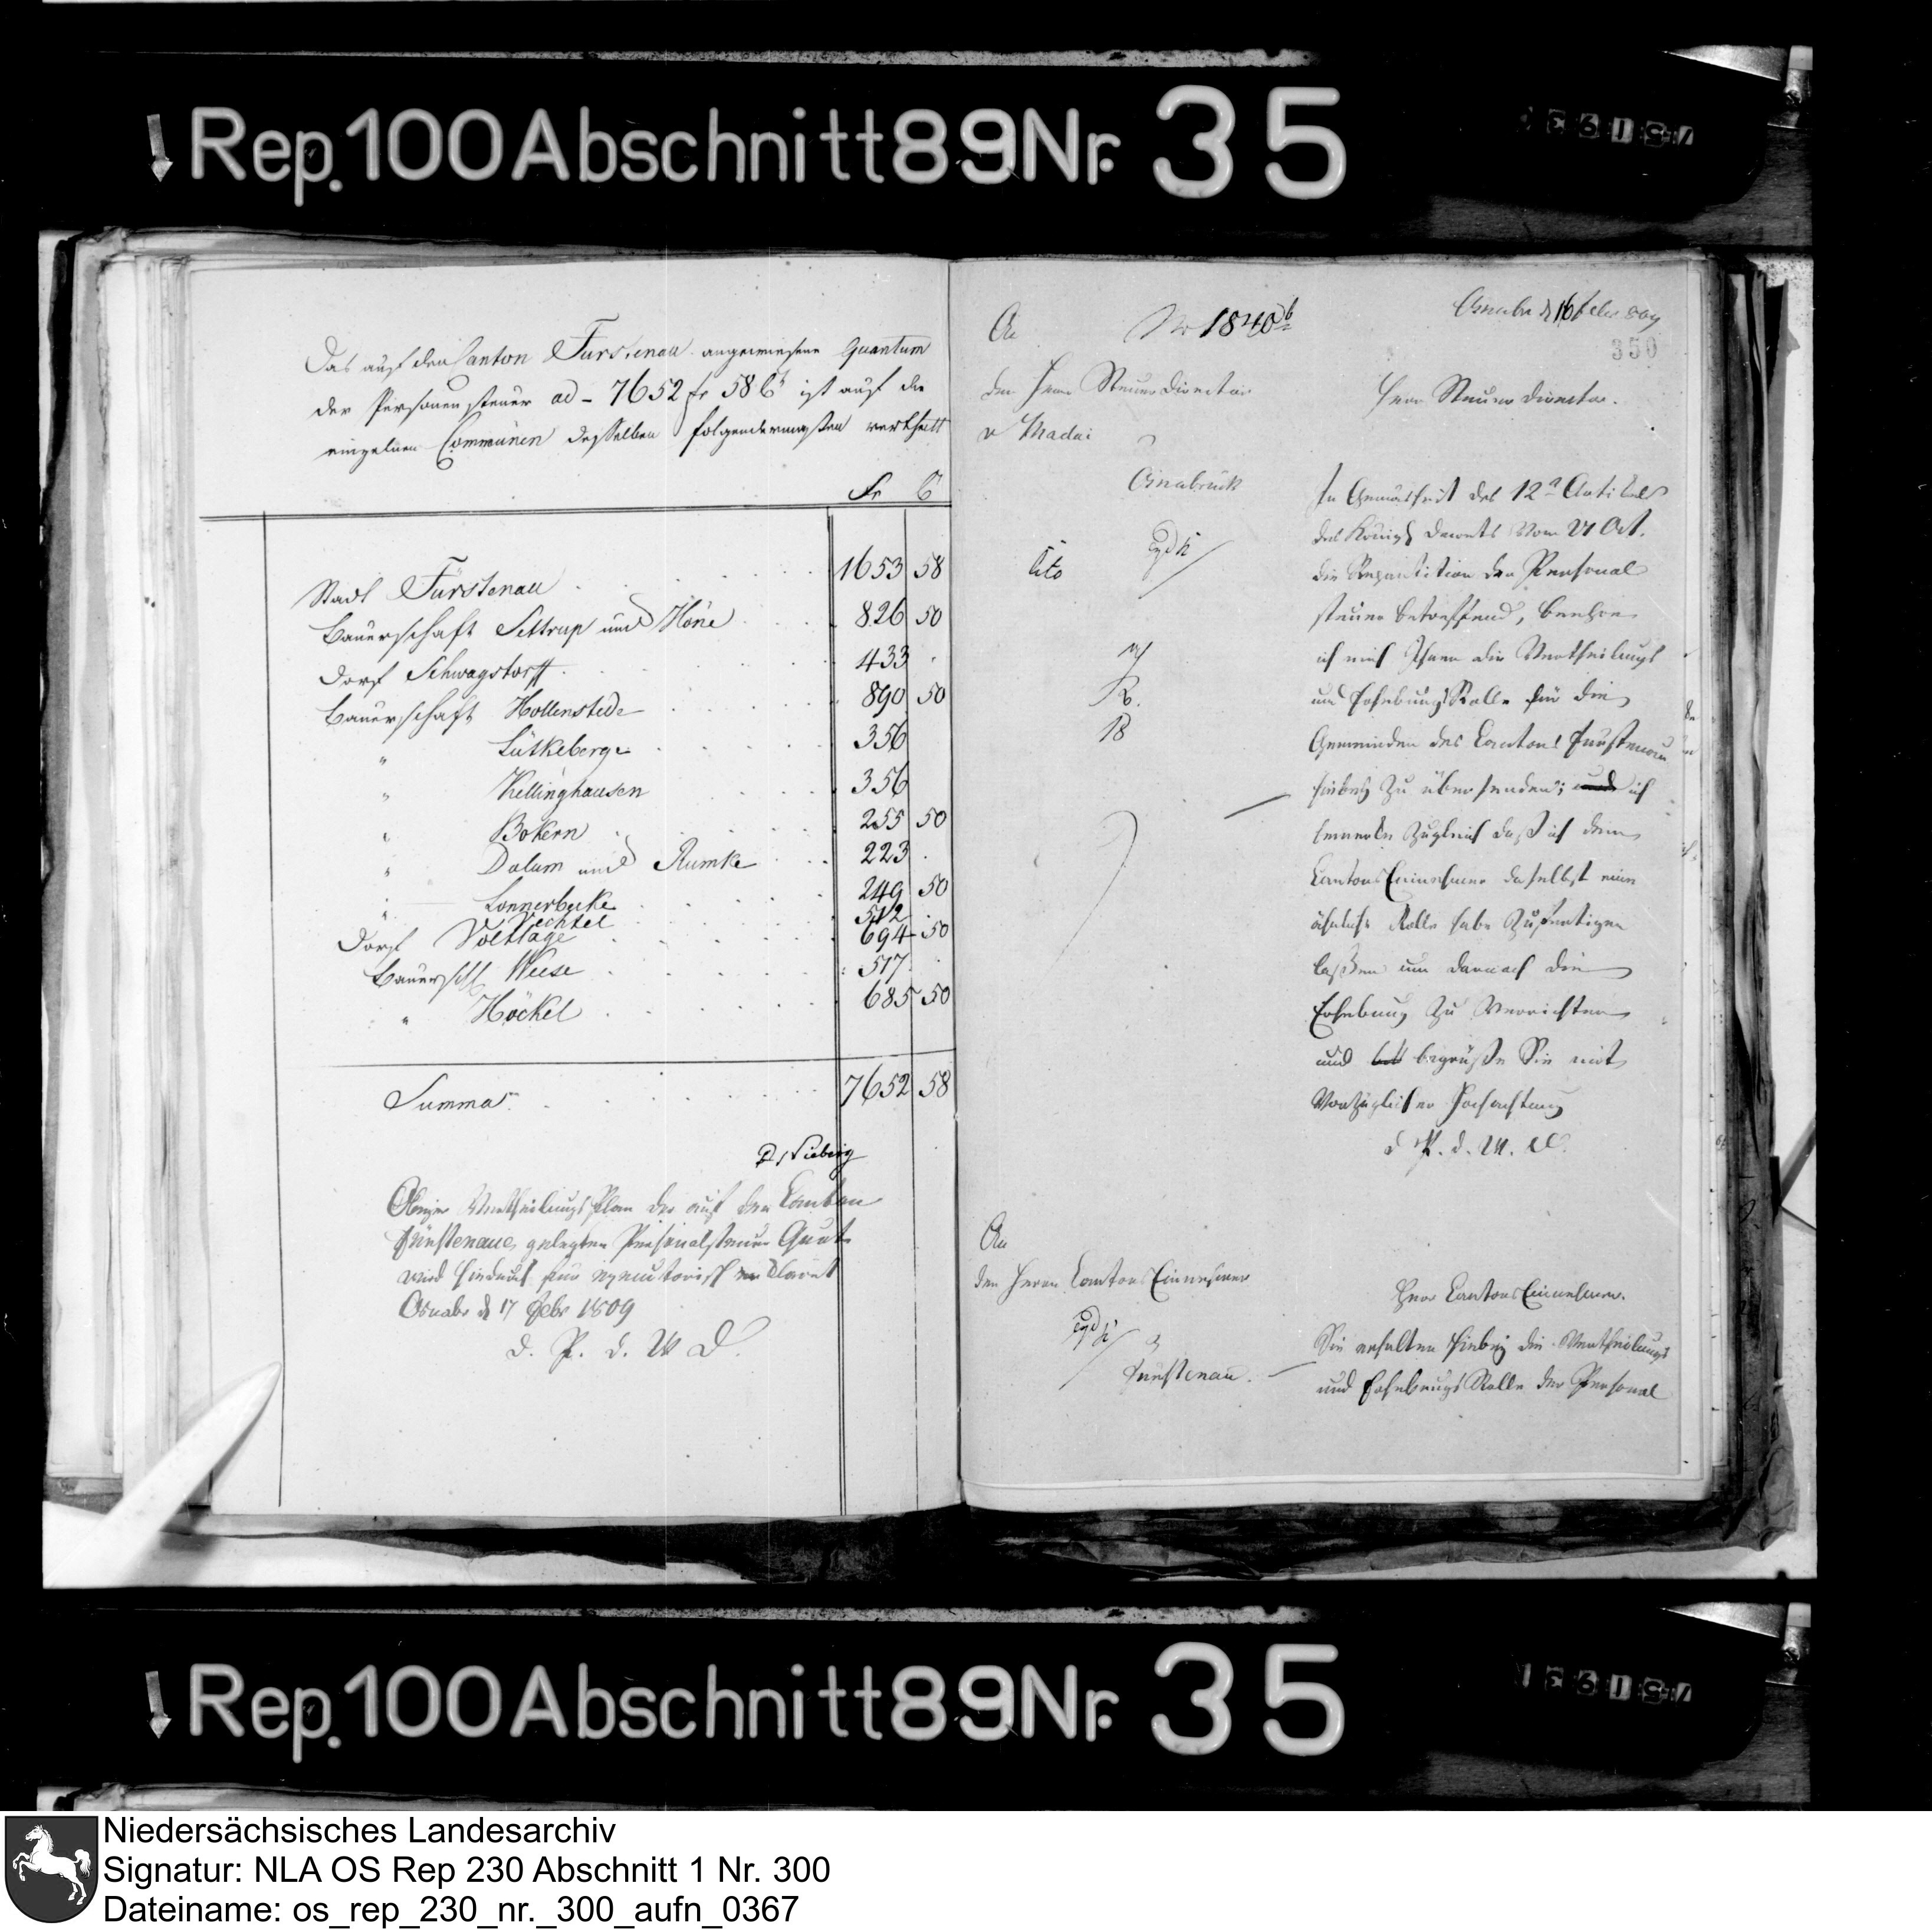 Rep. 100 Abschnitt 89 Nr. 35
Das auf den Canton Fürstenau angewiesene Quantum
der Personensteuer ad - 7652 fr 58 Ct ist auf die
einzelnen Communen desselben folgendermaßen vertheilt
Fr C
Stadt Fürstenau 1653 58
Bauerschaft Settrup und Höne 826 50
Dorf Schwagstorff 433
Bauerschaft Hollenstede 890 50
" Lütkeberge 356
" Kellinghausen 356
" Bokern 255 50
" Dalum und Rumke 223
" Lonnerbecke 249 50
Vechtel 512
Dorf Voltlage 694 50
Bauersch Weese 517
" Höckel 685 50
Summa 7652 58
Obiger Vertheilungs Plan des auf den Canton
Fürstenau gelegten Personalsteuer Quot
wird hiedurch für executorisch declarirt
Osnabr d 17 Febr 1809
d. P. d. W D.
An
No 1840b
Osnabr d 16 Febr 809
350
den Herrn Steuer Director
v Madai
Osnabrück
Herr Steuer Director.
In Gemäßheit des 12n Artikels
des Königl Decrets vom 21 Oct.
die Repartition der Personal
steuer betreffend, beehre
ich mich Ihnen die Vertheilungs
und Erhebungs Rolle für die
Gemeinden des Cantons Fürstenau
hiebey zu übersenden; und ich
bemerke zugleich daß ich dem
Cantons Einnehmer daselbst eine
ähnliche Rolle habe zufertigen
laßen um darnach die
Erhebung zu verrichten
und begrüße Sie mit
vorzüglicher Hochachtung
d P. d. W. D.
An
den Herrn Cantons Einnehmer
z
Fürstenau.
Herr Cantons Einnehmer.
Sie erhalten hiebey die Vertheilungs
und Erhebungs Rolle der Personal
Rep. 100 Abschnitt 89 Nr. 35
Niedersächsisches Landesarchiv
Signatur: NLA OS Rep 230 Abschnitt 1 Nr. 300
Dateiname: os_rep_230_nr._300_aufn_0367